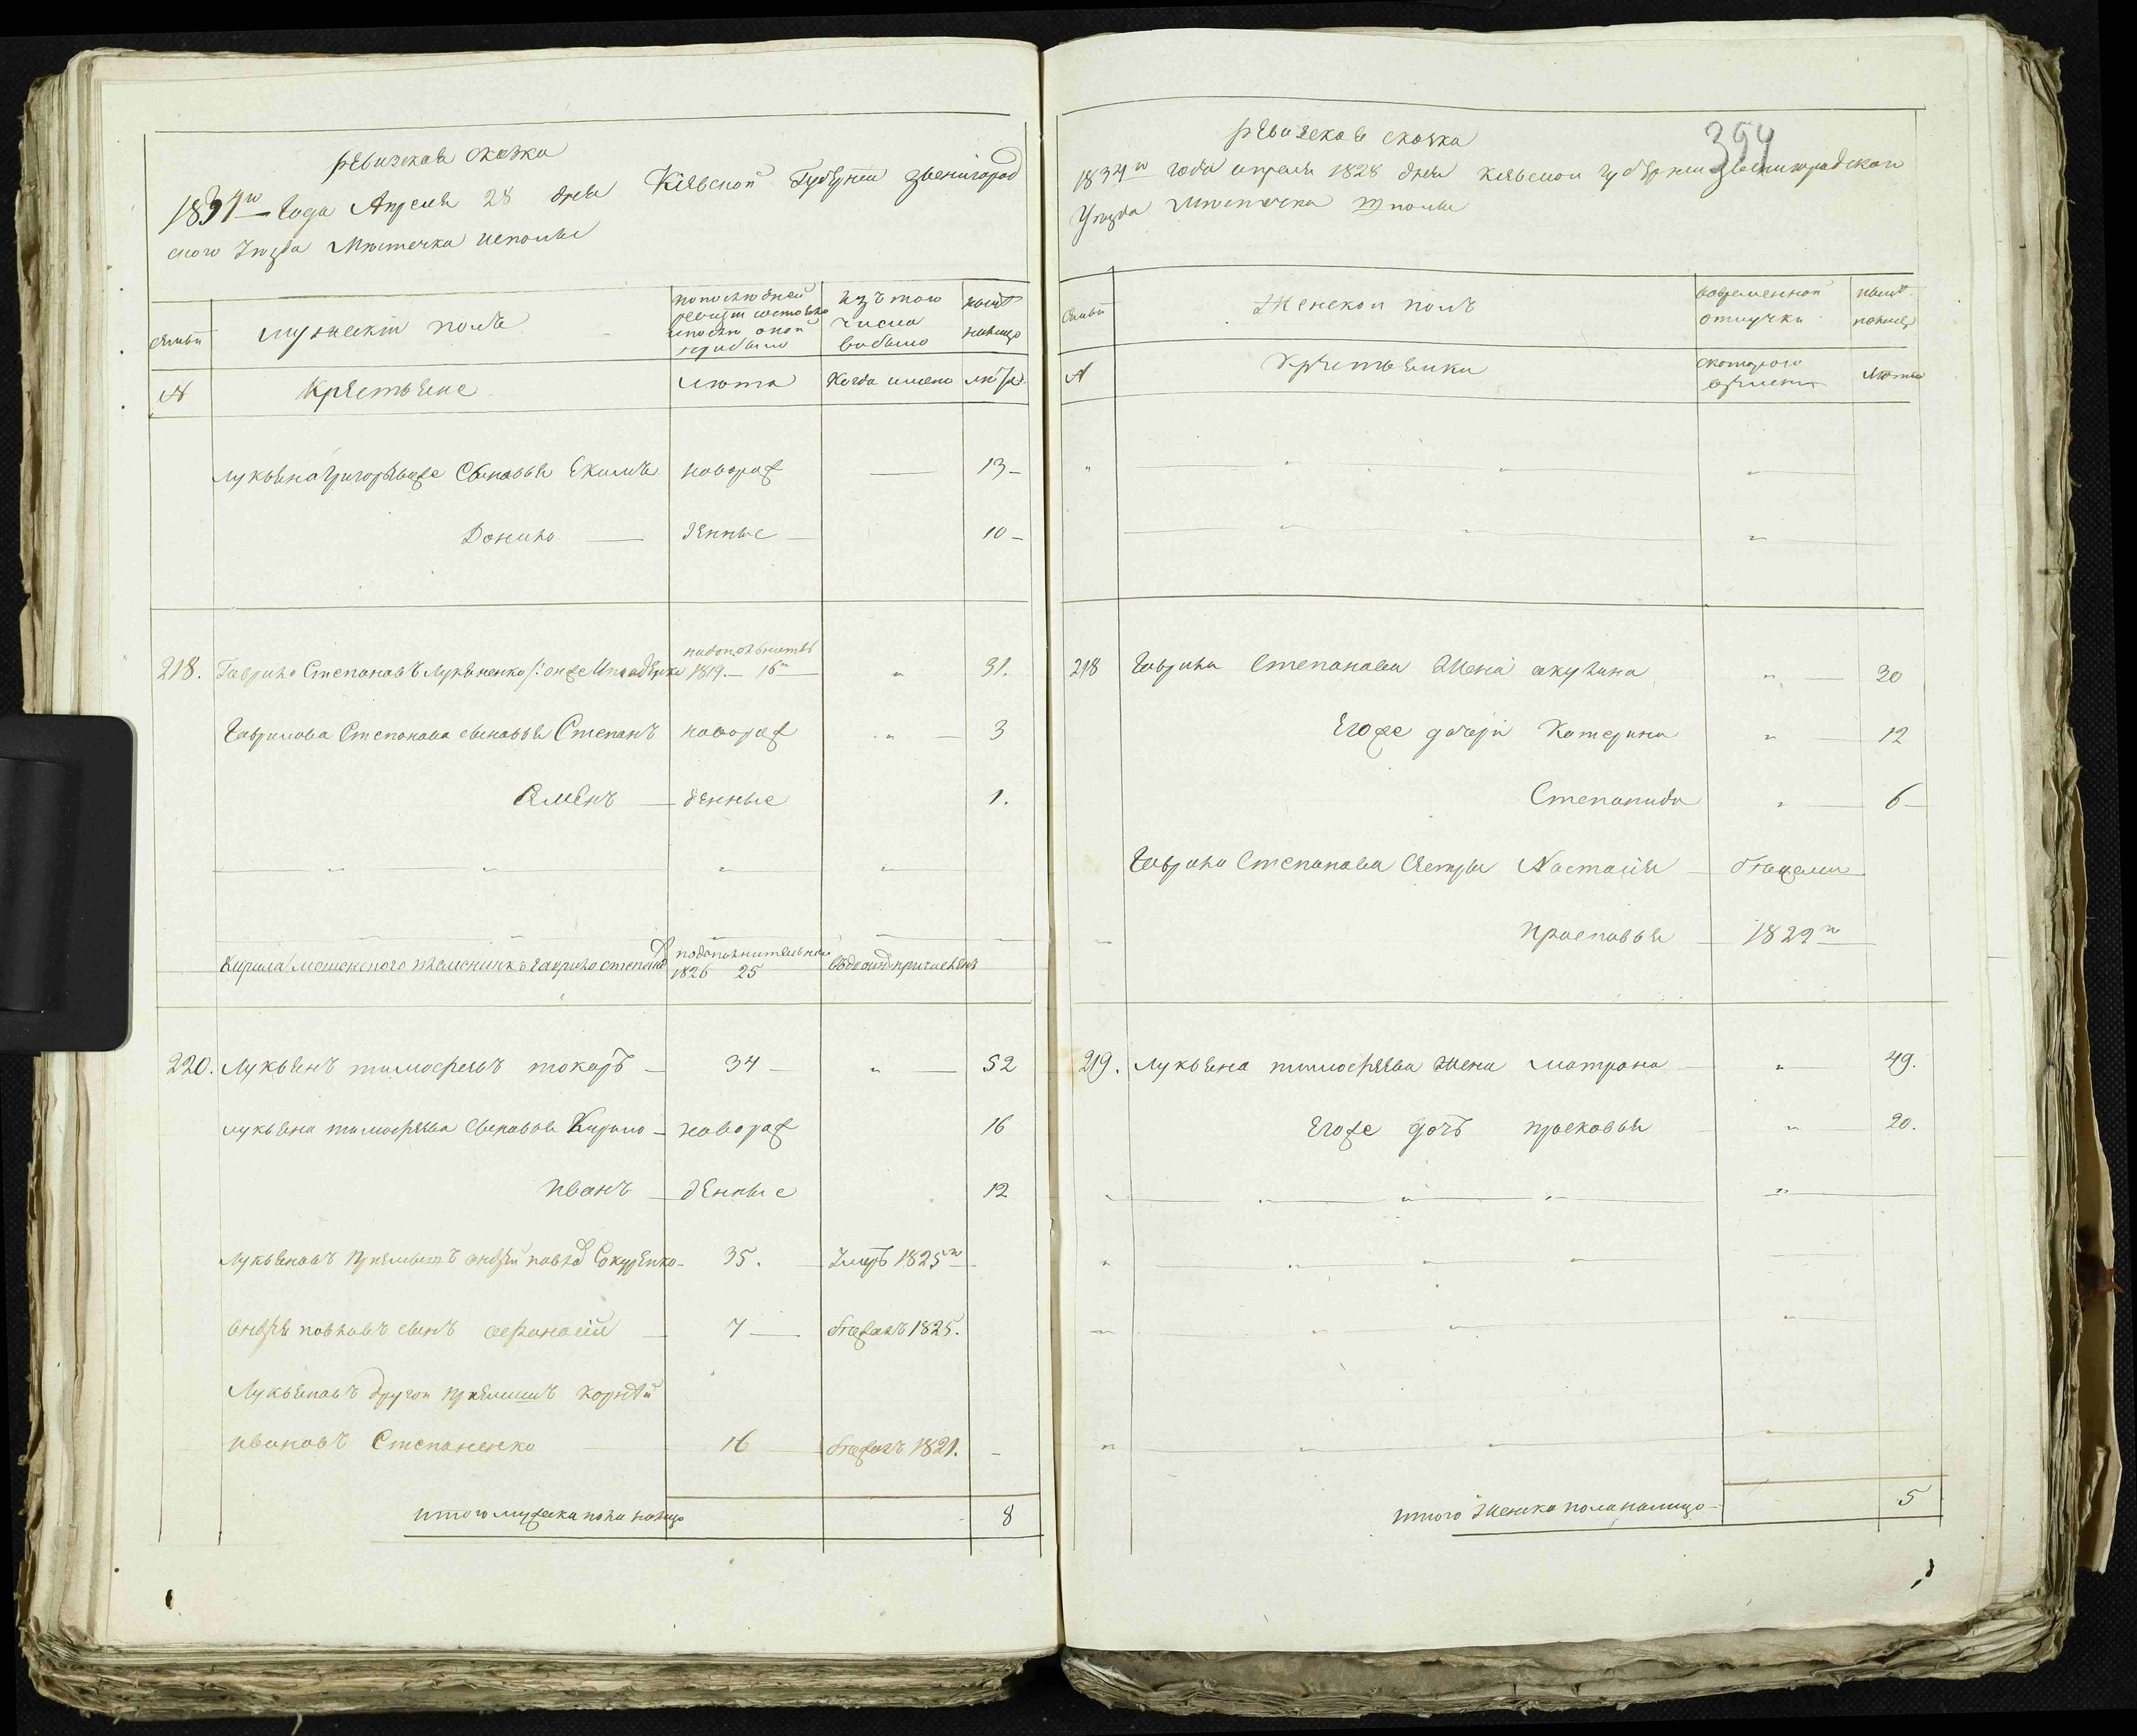 ревизская сказка
1834го Года Апреля 28 дня Киевской Губернии Звенигород
ского уезда Местечка
семьи
мужеский полъ
по последней
ревизии состояло
и после оной
прибыло
изъ того
числа
выбыло
ныне
налицо
№
Крестьяне
лета
Когда имено
лета
лукьяна григорьева Сыновья Екимъ новораж — 13 —
Данило — денные — 10 —
218. Гаврило Степановъ Лукьяненко 1819 — 16 " 31.
Гаврилова Степанова сыновья Степанъ новораж " 3
Семенъ — денные 1.
подополнительной
племенникъ Гаврило степанов 1826 25
220. Лукьянъ тимофеевъ токарь — 34 — " — 52
лукьяна тимофеева сыновья Кирило — новораж 16
иванъ — денные 12
Лукьяновъ андрей павлов — 35. умеръ 1825го
андрея павловъ сынъ афанасий — 7 — 1825.
Лукьяновъ другой корней
ивановъ Степаненко — 16 — 1821. —
итого мужеска пола налицо 8
394
ревизская сказка
1834го года апреля 1828 дня киевской губернии звенигородской
Уезда Местечка
семьи
Женской полъ
во временной
отлучке
ныне
налицо
№
крестьянки
с которого
времени
лета
218 Гаврила Степанова Жена акулина " — 30
Егоже дочери Катерина " — 12
Степанида " — 6 —
Гаврила Степанова Сестры Настасия —
Прасковья — 1822го
219. лукьяна тимофеева жена матрона — " — 49.
Егоже дочь прасковья — " — 20.
итого женска пола налицо — 5